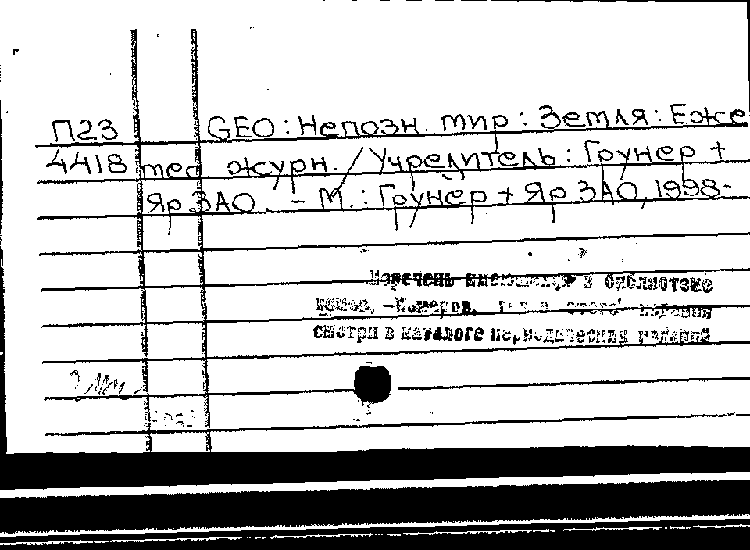 П23 GEO : Непозн. мир : Земля : Еже
4418 мес. журн. / Учредитель : Грунер +
Яр ЗАО. - М. : Грунер + Яр ЗАО, 1998-
Перечень имеющихся в библиотеке
смотри в каталоге периодических изданий